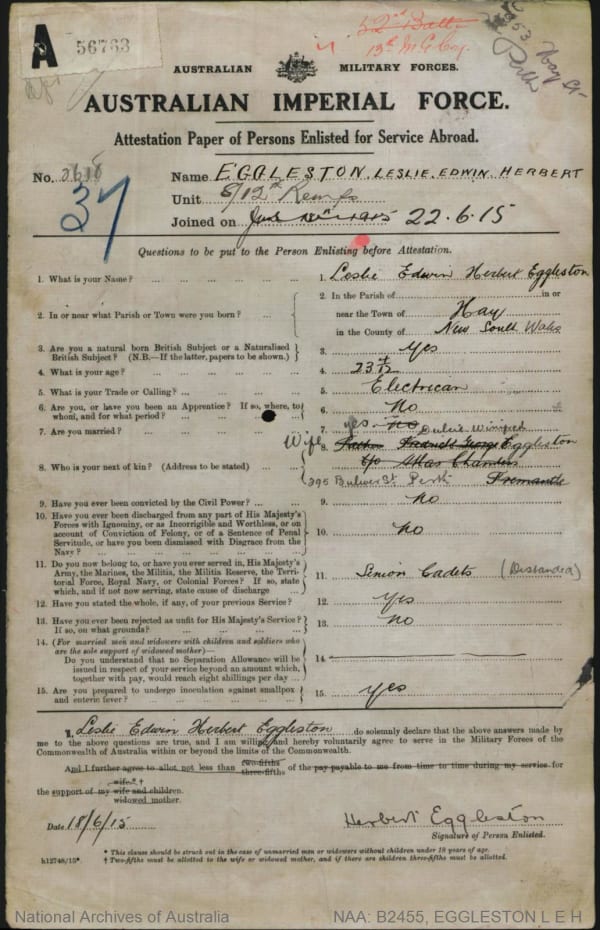 A 56763
52nd Batt.
13th M G Coy
253 Hay St
Perth
AUSTRALIAN MILITARY FORCES.
AUSTRALIAN IMPERIAL FORCE.
Attestation Paper of Persons Enlisted for Service Abroad.
No. 2618 Name EGGLESTON, LESLIE, EDWIN, HERBERT
37
Unit 8/12th Reinfs
Joined on 22.6.15
Questions to be put to the Person Enlisting before Attestation.
1. What is your Name? ... 1. Leslie Edwin Herbert Eggleston
2. In or near what Parish or Town were you born? ... 2. In the Parish of in or
near the Town of Hay
in the County of New South Wales
3. Are you a natural born British Subject or a Naturalised
British Subject? (N.B.—If the latter, papers to be shown.) 3. Yes
4. What is your age? ... 4. 23
5. What is your Trade or Calling? ... 5. Electrican
6. Are you, or have you been an Apprentice? If so, where, to
whom, and for what period? ... 6. No
7. Are you married? ... 7. yes No
8. Who is your next of kin? (Address to be stated) ... 8. Wife Dulcie Winifred
Father Francis George Eggleston
c/o Atlas Chambers
395 Bulwer St. Perth Fremantle
9. Have you ever been convicted by the Civil Power? ... 9. No
10. Have you ever been discharged from any part of His Majesty's
Forces with Ignominy, or as Incorrigible and Worthless, or on
account of Conviction of Felony, or of a Sentence of Penal
Servitude, or have you been dismissed with Disgrace from the
Navy? ... 10. No
11. Do you now belong to, or have you ever served in, His Majesty's
Army, the Marines, the Militia, the Militia Reserve, the Terri-
torial Force, Royal Navy, or Colonial Forces? If so, state
which, and if not now serving, state cause of discharge ... 11. Senior Cadets (Disbanded)
12. Have you stated the whole, if any, of your previous Service? 12. Yes
13. Have you ever been rejected as unfit for His Majesty's Service?
If so, on what grounds? ... 13. No
14. (For married men and widowers with children and soldiers who
are the sole support of widowed mother)—
Do you understand that no Separation Allowance will be
issued in respect of your service beyond an amount which,
together with pay, would reach eight shillings per day ... 14.
15. Are you prepared to undergo inoculation against smallpox
and enteric fever? ... 15. Yes
I, Leslie Edwin Herbert Eggleston do solemnly declare that the above answers made by
me to the above questions are true, and I am willing and hereby voluntarily agree to serve in the Military Forces of the
Commonwealth of Australia within or beyond the limits of the Commonwealth.
And I further agree to allot not less than two-fifths three-fifths of the pay payable to me from time to time during my service for
the support of my wife* † wife and children. widowed mother.
Date 18/6/15 Herbert Eggleston
Signature of Person Enlisted.
* This clause should be struck out in the case of unmarried men or widowers without children under 18 years of age.
h12748/15*. † Two-fifths must be allotted to the wife or widowed mother, and if there are children three-fifths must be allotted.
National Archives of Australia NAA: B2455, EGGLESTON L E H